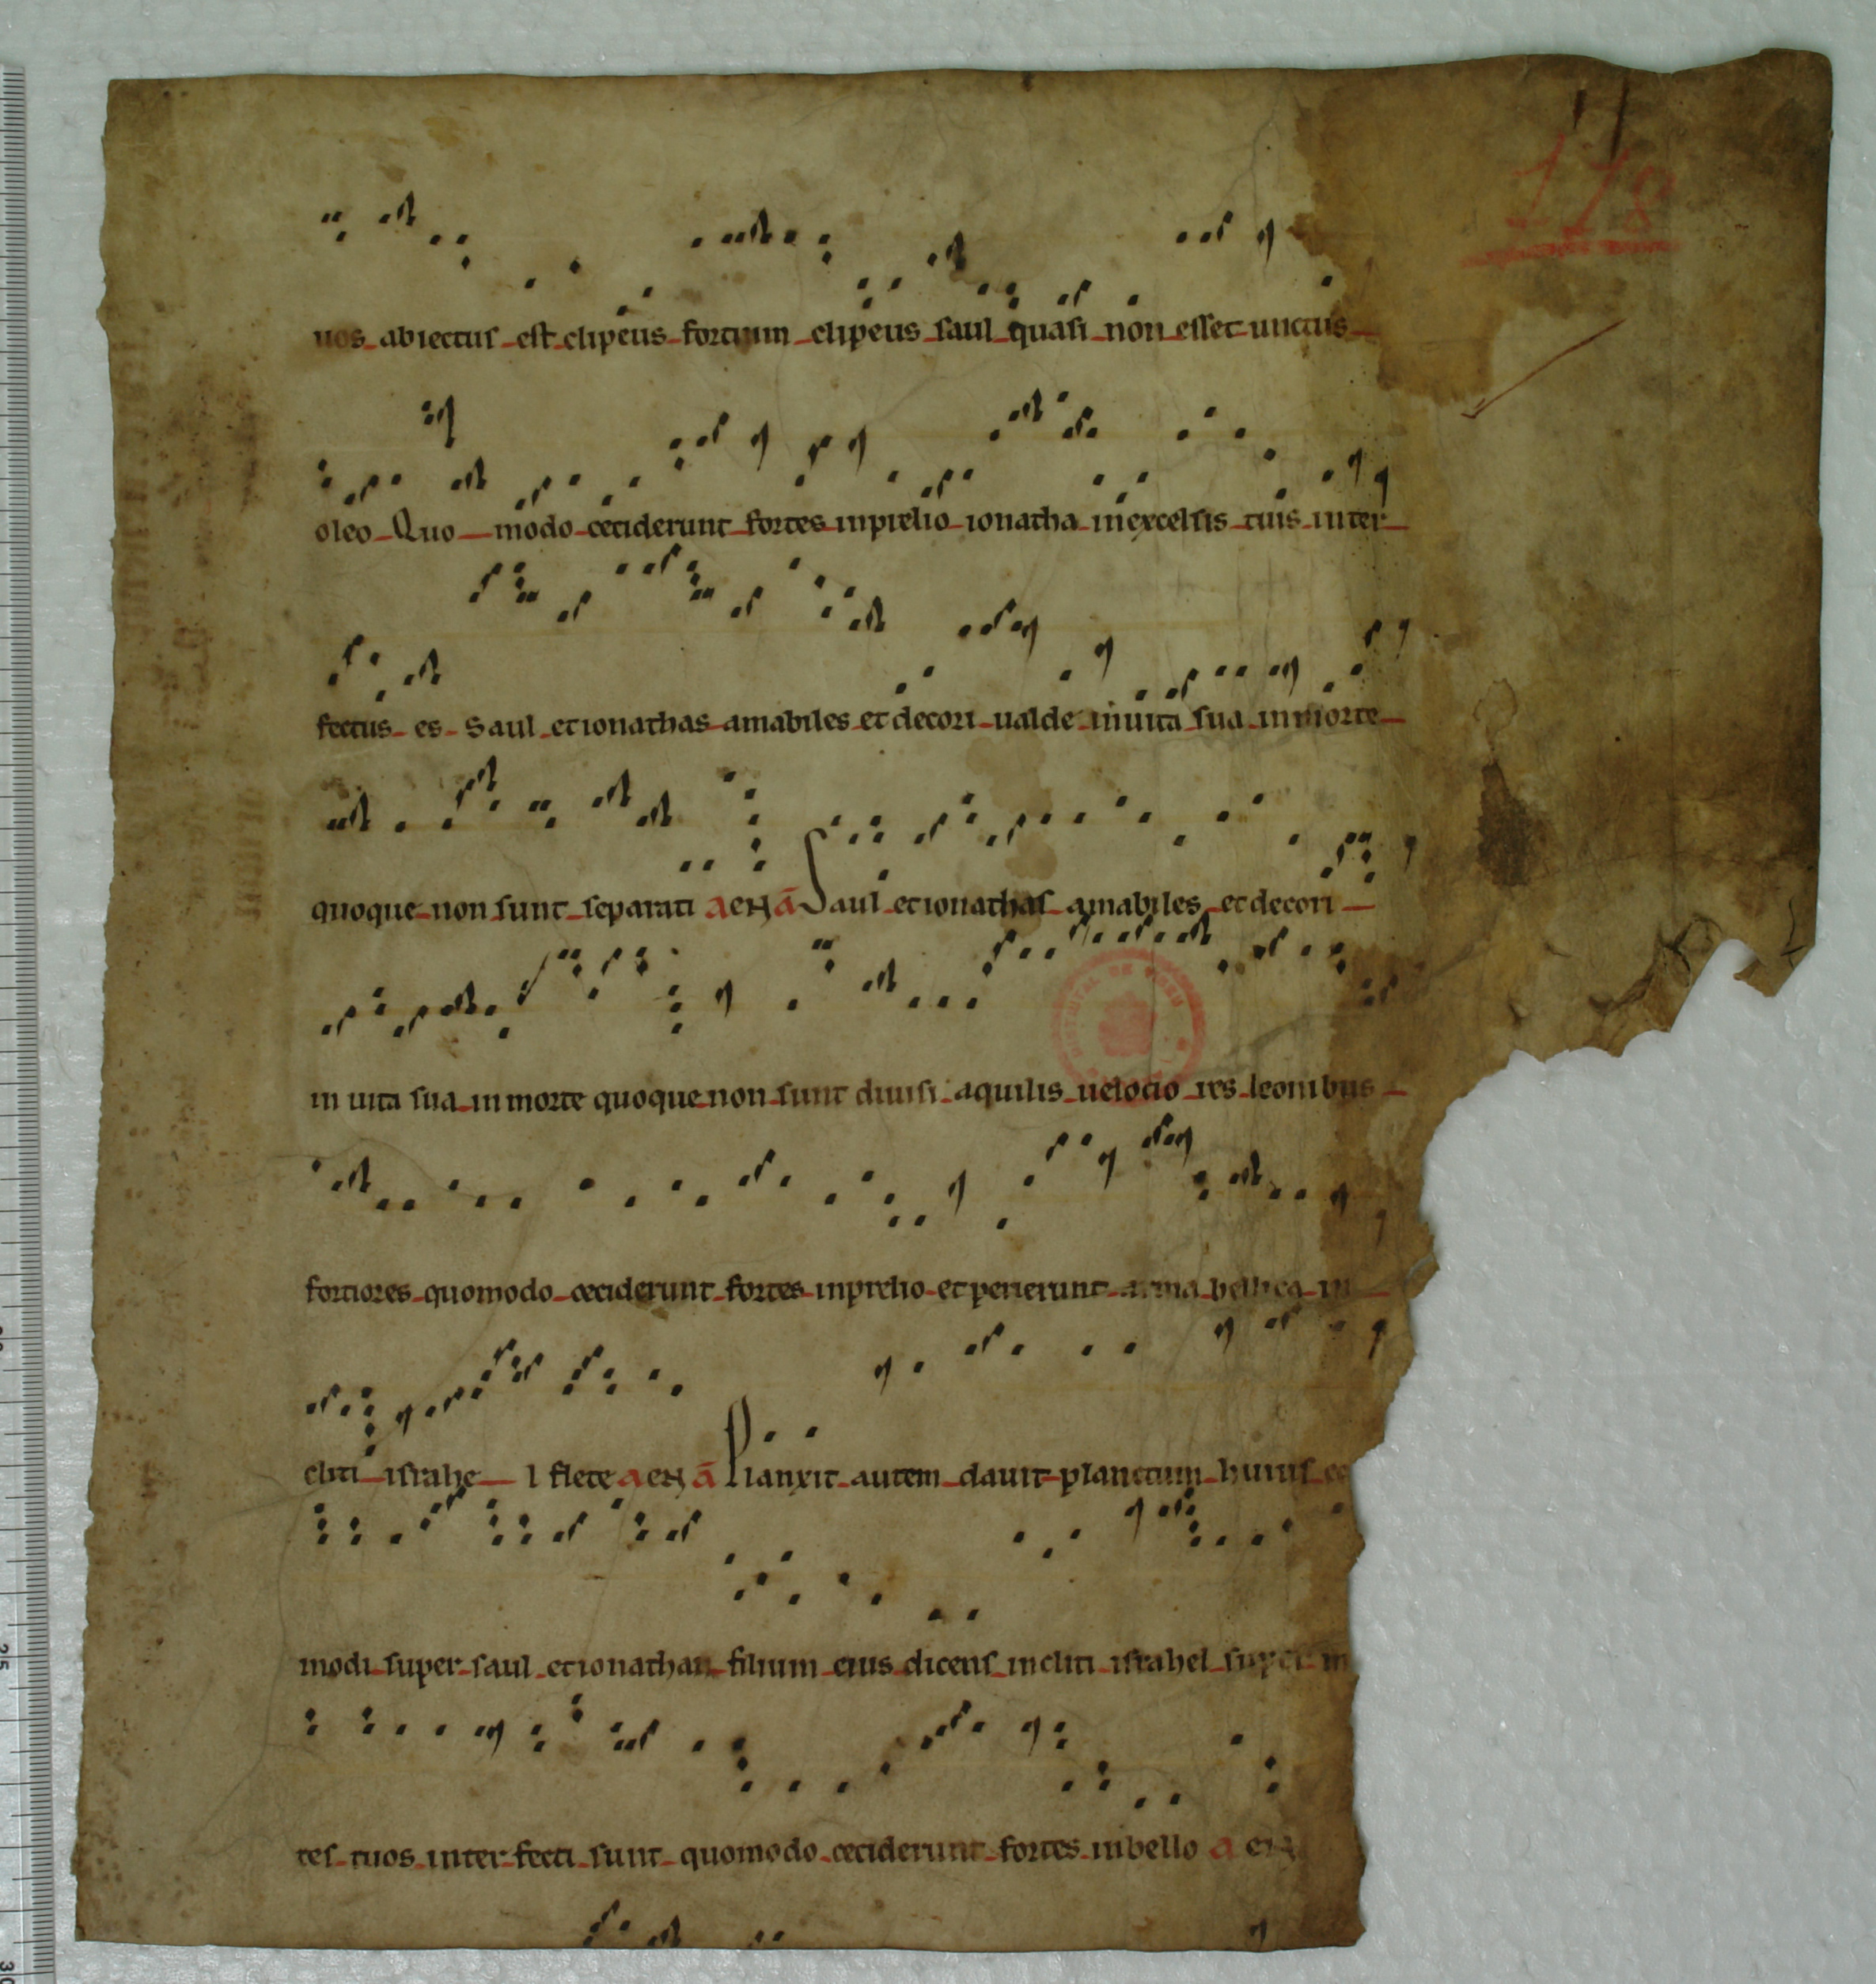 178
uos abiectus est clipeus fortium clipeus saul quasi non esset unctus
oleo Quo modo ceciderunt fortes inprelio ionatha inexcelsis tuis inter
fectus es Saul et ionathas amabiles et decori ualde inuita sua inmorte
quoque non sunt separati aeuā Saul et ionathas amabiles et decori
in uita sua inmorte quoque non sunt diuisi aquilis uelocio res leonibus
fortiores quomodo ceciderunt fortes inprelio et perierunt arma bellica in
cliti israhe l flete aeuā Planxit autem dauit planctum huius ce
modi super saul et ionathan filium eius dicens incliti israhel super m
tes tuos inter fecti sunt quomodo ceciderunt fortes inbello aeu